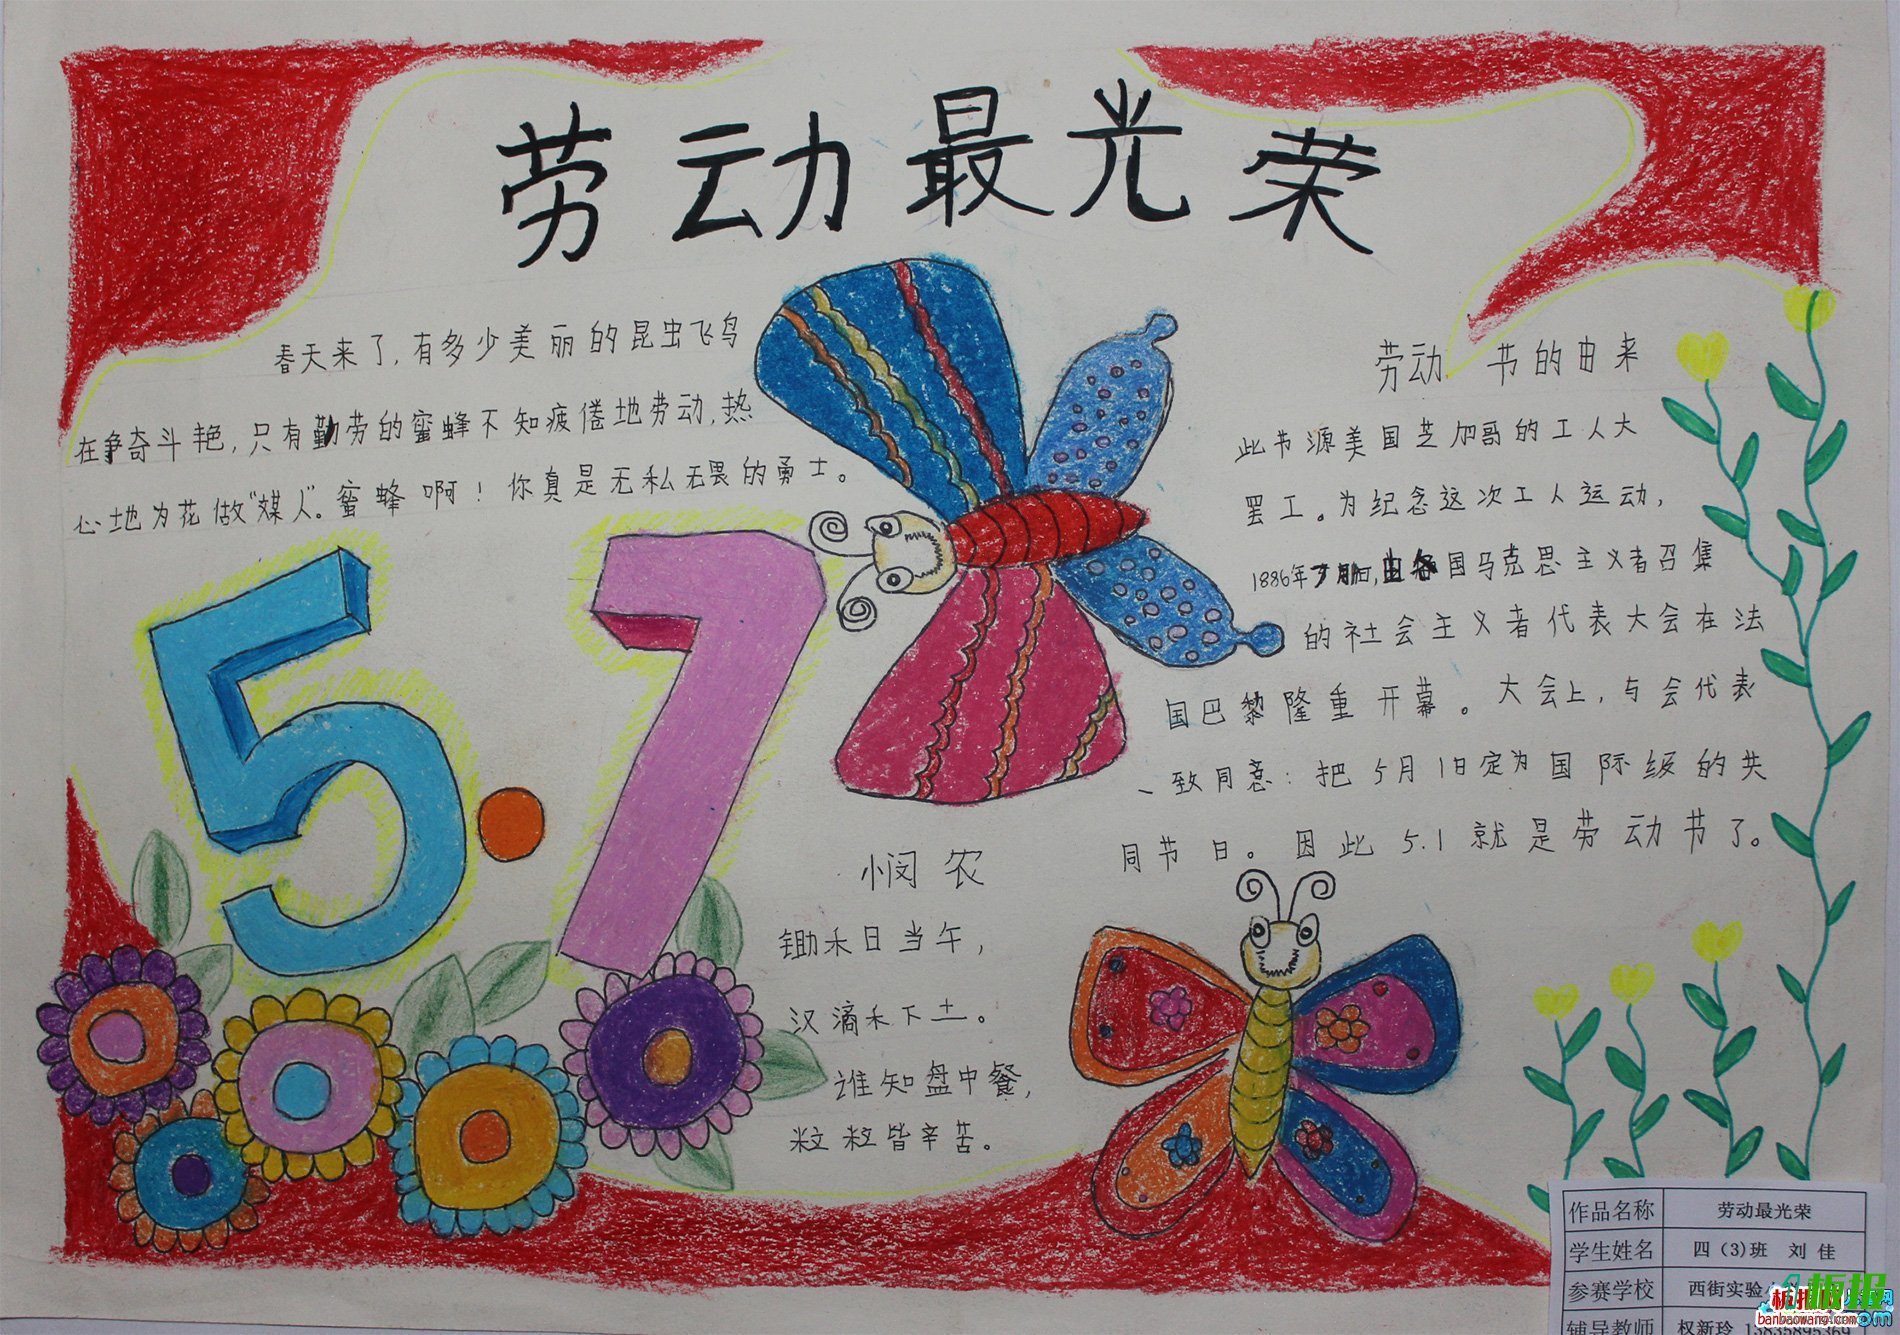 劳动最光荣
春天来了,有多少美丽的昆虫飞鸟
在争奇斗艳,只有勤劳的蜜蜂不知疲倦地劳动,热
心地为花做“媒人”。蜜蜂啊!你真是无私无畏的勇士。
5·1
劳动 节的由来
此节源美国芝加哥的工人大
罢工。为纪念这次工人运动,
1886年 国马克思主义者召集
的社会主义者代表大会在法
国巴黎隆重开幕。大会上,与会代表
一致同意:把5月1日定为国际级的共
同节日。因此5.1就是劳动节了。
悯农
锄禾日当午,
汉滴禾下土。
谁知盘中餐,
粒粒皆辛苦。
作品名称 劳动最光荣
学生姓名 四(3)班 刘佳
参赛学校 西街实验
辅导教师 权新玲
板报
banbaowang.com